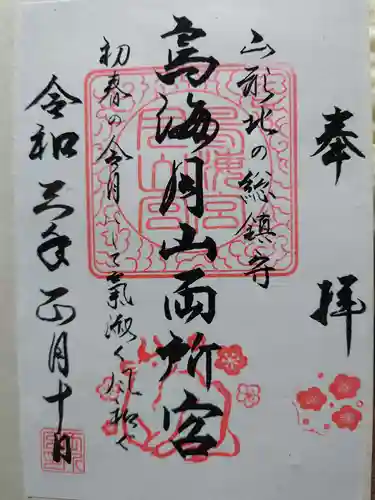 奉拝
山形北の総鎮守
鳥海月山両所宮
初春の令月にして氣淑く風和ぎ
令和三年正月十日